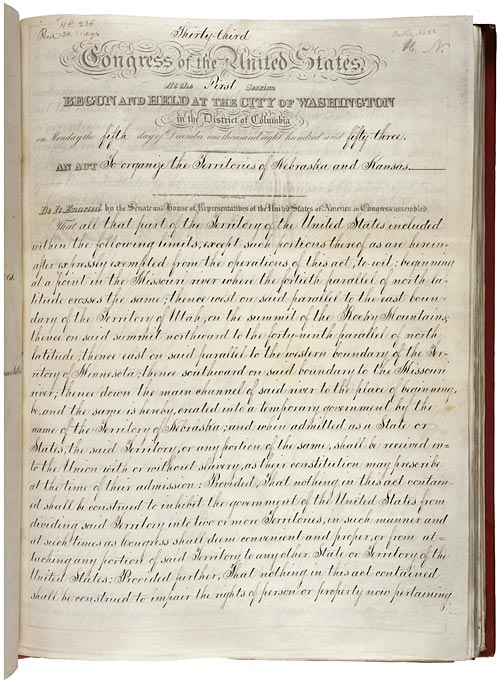 Thirty-third
Congress of the United States,
At the First Session
BEGUN AND HELD AT THE CITY OF WASHINGTON
in the District of Columbia
on Monday the fifth day of December one thousand eight hundred and fifty-three.
AN ACT To organize the Territories of Nebraska and Kansas.
Be It Enacted by the Senate and House of Representatives of the United States of America in Congress assembled.
That all that part of the Territory of the United States included
within the following limits, except such portions thereof as are herein-
after expressly exempted from the operations of this act, to wit: beginning
at a point in the Missouri river where the fortieth parallel of north la-
titude crosses the same; thence west on said parallel to the east boun-
dary of the Territory of Utah, on the summit of the Rocky Mountains;
thence on said summit northward to the forty-ninth parallel of north
latitude; thence east on said parallel to the western boundary of the Ter-
ritory of Minnesota; thence southward on said boundary to the Missouri
river; thence down the main channel of said river to the place of beginning,
be, and the same is hereby, created into a temporary government by the
name of the Territory of Nebraska; and when admitted as a State or
States, the said Territory, or any portion of the same, shall be received in-
to the Union with or without slavery, as their constitution may prescribe
at the time of their admission: Provided, That nothing in this act contain-
ed shall be construed to inhibit the government of the United States from
dividing said Territory into two or more Territories, in such manner and
at such times as Congress shall deem convenient and proper, or from at-
taching any portion of said Territory to any other State or Territory of the
United States: Provided further, That nothing in this act contained
shall be construed to impair the rights of person or property now pertaining